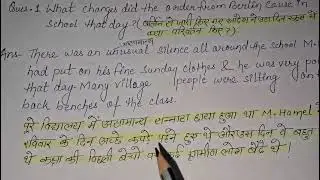 Ques.1 What changes did the order from Berlin cause in
school that day? (बर्लिन से जारी किए गए आदेश ने उस दिन स्कूल में
क्या परिवर्तन किए?)
असामान्य
Ans- There was an unusual silence all around the school M.
had put on his fine Sunday clothes & he was very po
that day Many village people were sitting on
back benches of the class.
पूरे विद्यालय में असामान्य सन्नाटा छाया हुआ था M. Hamel
रविवार के दिन वाले कपड़े पहने हुए थे और उस दिन वे बहुत
थे कक्षा की पिछली बेंचों पर ग्रामीण लोग बैठे थे।